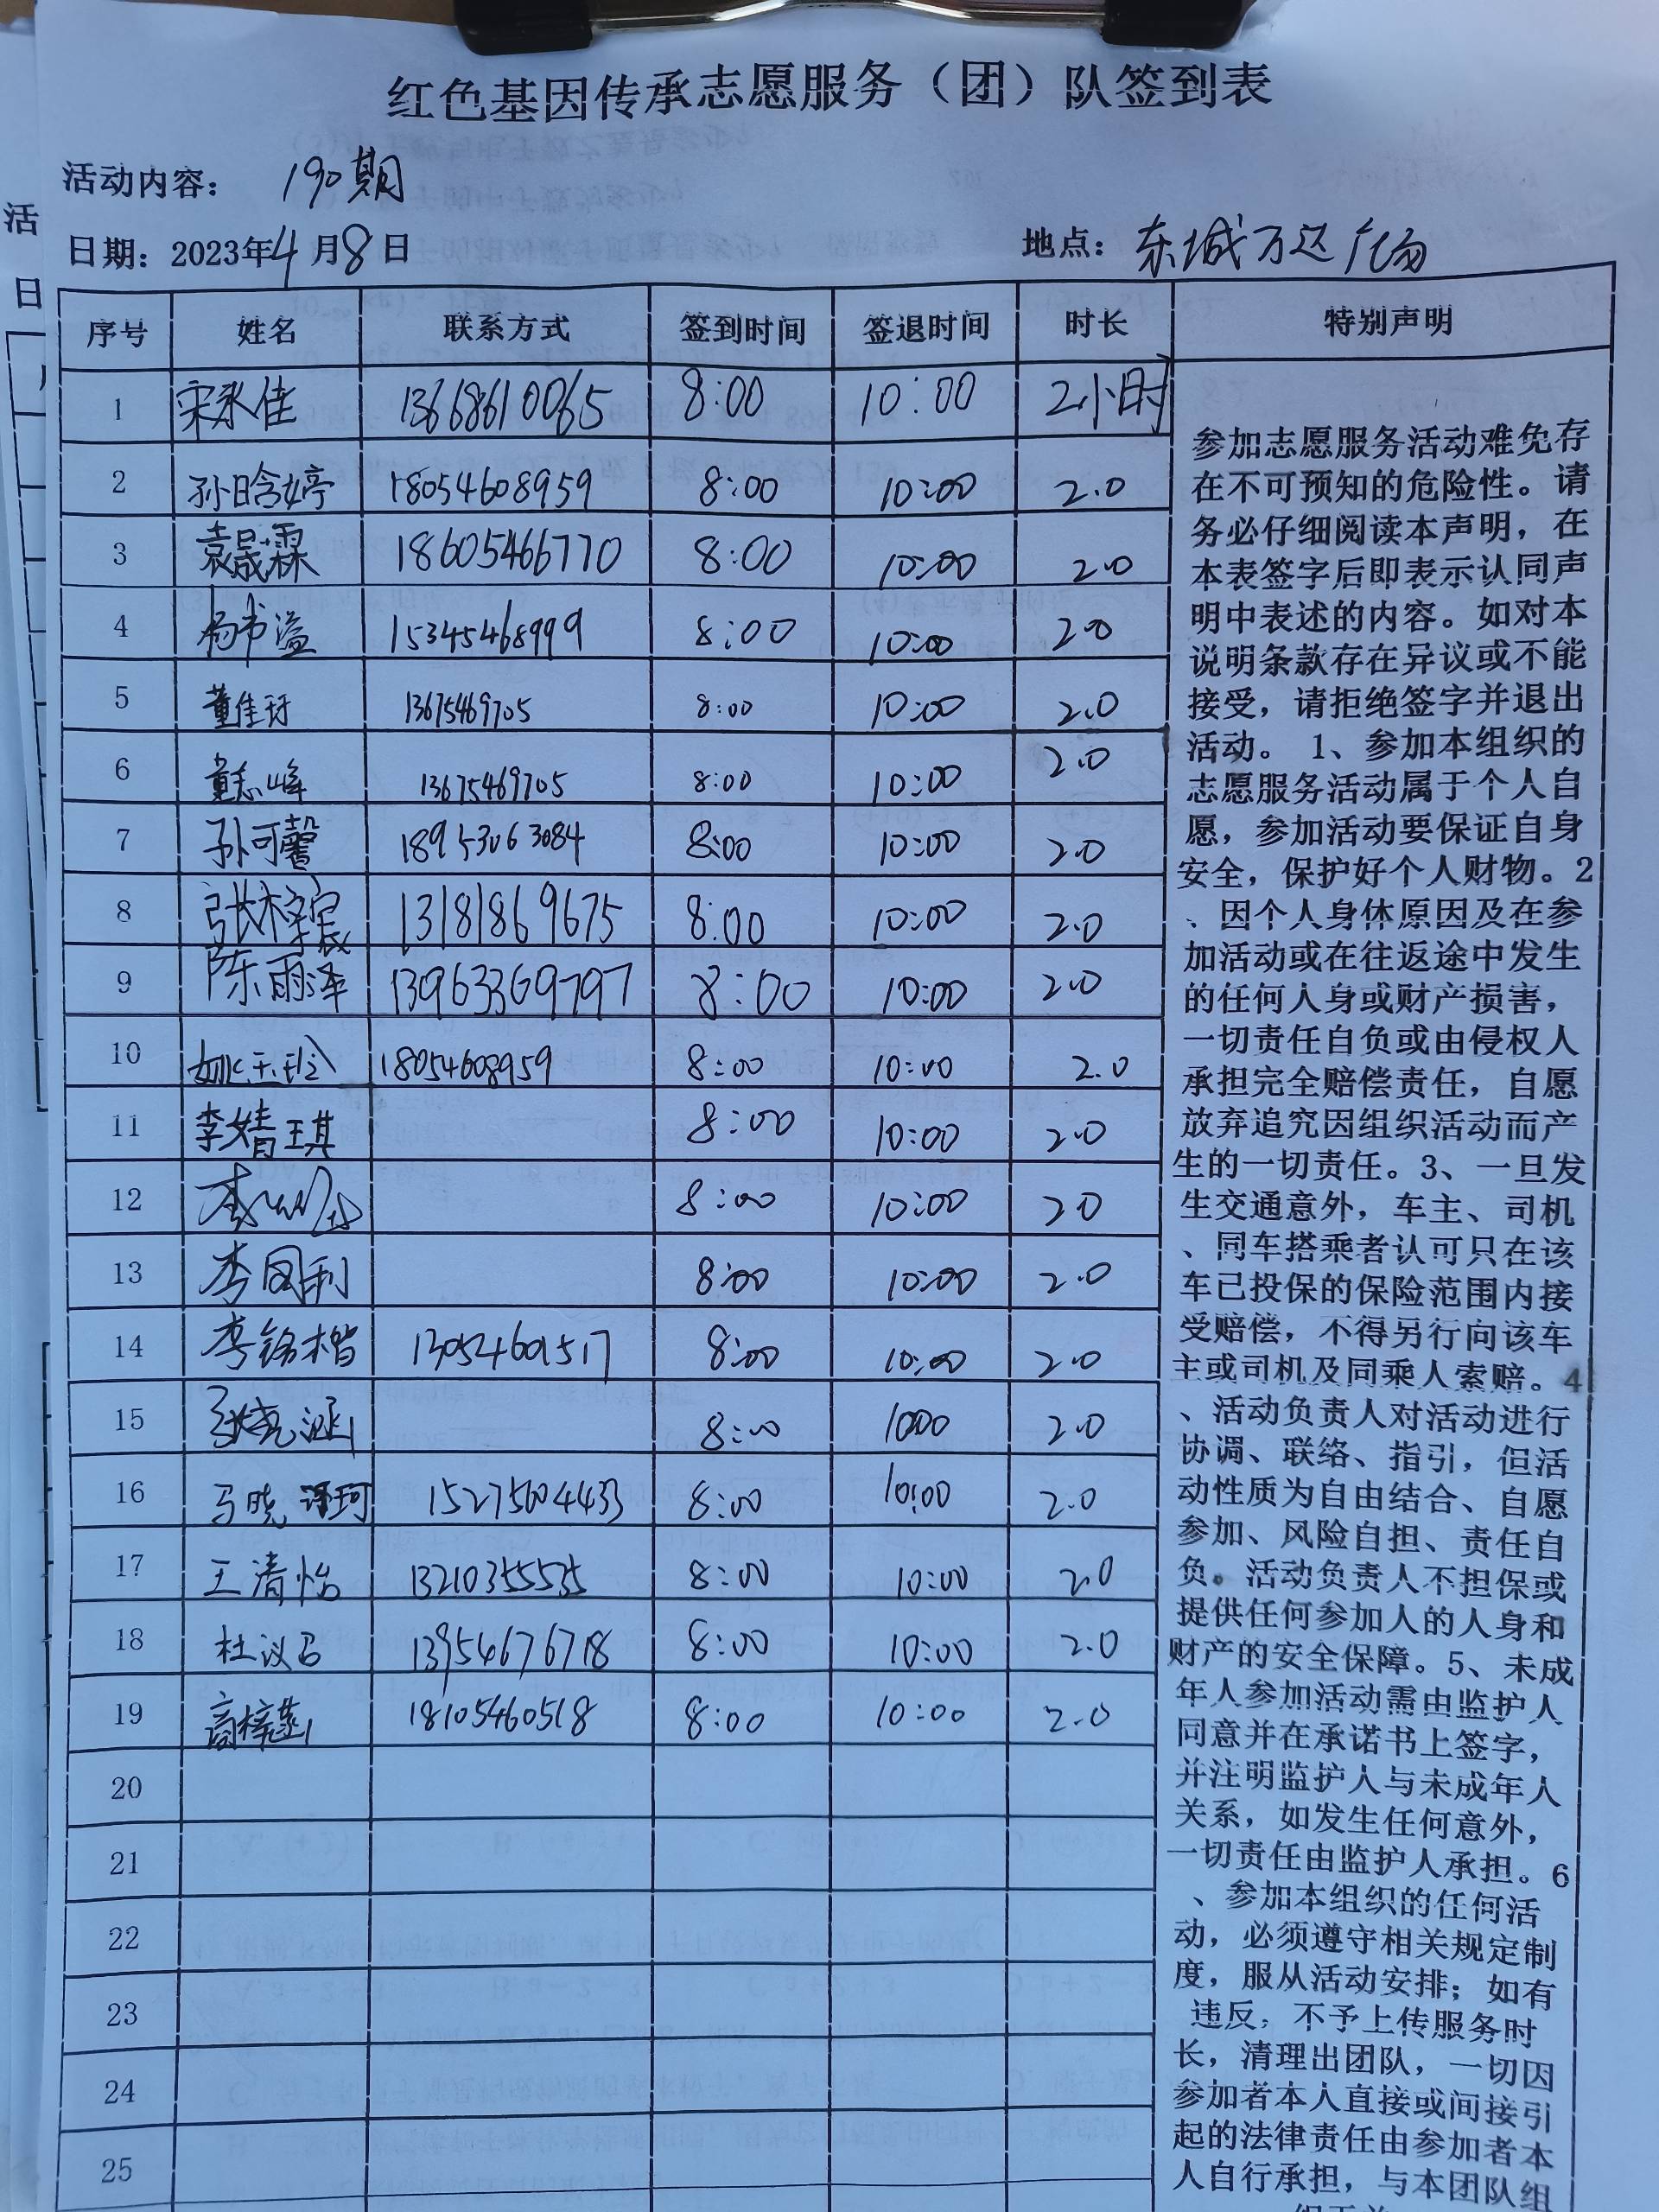 红色基因传承志愿服务（团）队签到表
活动内容： 190期
日期：2023年4月8日 地点：东城万达广场
序号 姓名 联系方式 签到时间 签退时间 时长 特别声明
1 宋承佳 13668610065 8:00 10:00 2小时
2 孙晗婷 18054608959 8:00 10:00 2.0
3 袁晟霖 18605466770 8:00 10:00 2.0
4 杨书溢 15345468999 8:00 10:00 2.0
5 董佳玗 13675469705 8:00 10:00 2.0
6 董志峰 13675469705 8:00 10:00 2.0
7 孙可馨 18953063084 8:00 10:00 2.0
8 张梓宸 13181869675 8:00 10:00 2.0
9 陈雨泽 13963369797 8:00 10:00 2.0
10 姚玉玲 18054608959 8:00 10:00 2.0
11 李婧琪 8:00 10:00 2.0
12 8:00 10:00 20
13 李国利 8:00 10:00 2.0
14 李铭楷 13054601517 8:00 10:00 2.0
15 8:00 1000 2.0
16 马晓 15275604433 8:00 10:00 2.0
17 王清怡 13210355535 8:00 10:00 2.0
18 杜议 13954676718 8:00 10:00 2.0
19 高梓 18105460518 8:00 10:00 2.0
20
21
22
23
24
25
参加志愿服务活动难免存
在不可预知的危险性。请
务必仔细阅读本声明，在
本表签字后即表示认同声
明中表述的内容。如对本
说明条款存在异议或不能
接受，请拒绝签字并退出
活动。 1、参加本组织的
志愿服务活动属于个人自
愿，参加活动要保证自身
安全，保护好个人财物。2
、因个人身体原因及在参
加活动或在往返途中发生
的任何人身或财产损害，
一切责任自负或由侵权人
承担完全赔偿责任，自愿
放弃追究因组织活动而产
生的一切责任。3、一旦发
生交通意外，车主、司机
、同车搭乘者认可只在该
车已投保的保险范围内接
受赔偿，不得另行向该车
主或司机及同乘人索赔。4
、活动负责人对活动进行
协调、联络、指引，但活
动性质为自由结合、自愿
参加、风险自担、责任自
负。活动负责人不担保或
提供任何参加人的人身和
财产的安全保障。5、未成
年人参加活动需由监护人
同意并在承诺书上签字，
并注明监护人与未成年人
关系，如发生任何意外，
一切责任由监护人承担。6
、参加本组织的任何活
动，必须遵守相关规定制
度，服从活动安排；如有
违反，不予上传服务时
长，清理出团队，一切因
参加者本人直接或间接引
起的法律责任由参加者本
人自行承担，与本团队组
活
日